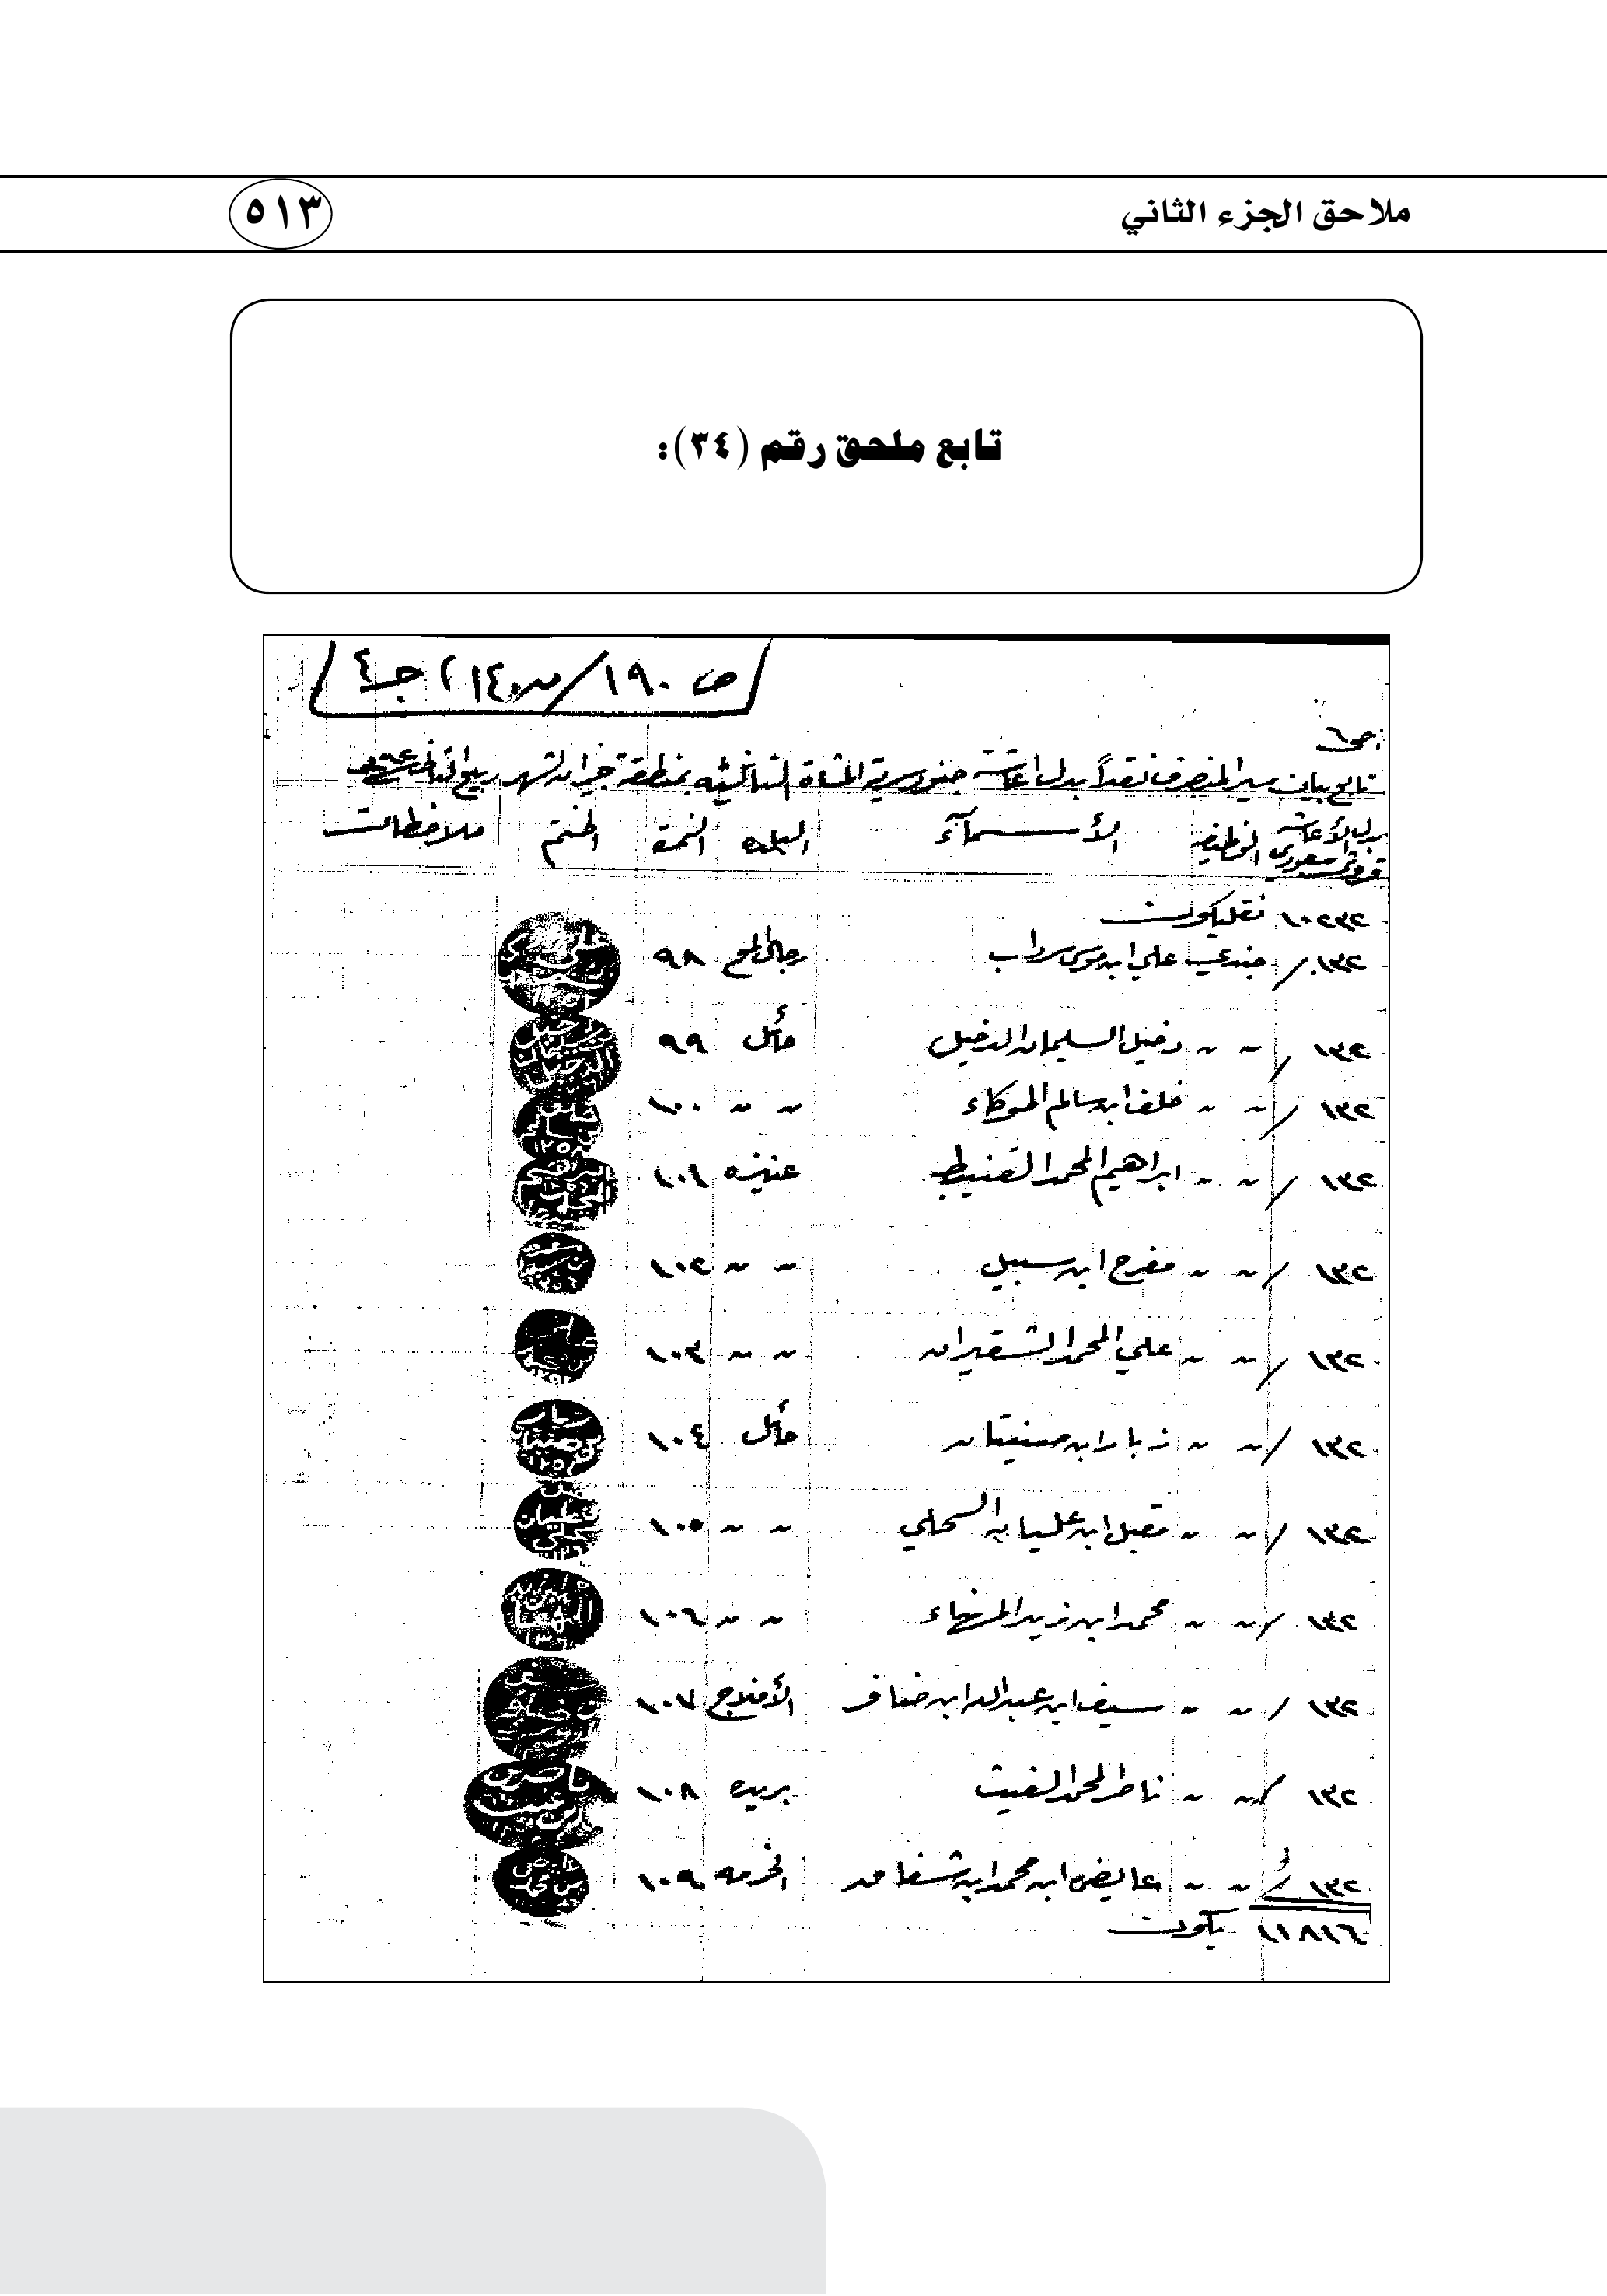 ملاحق الجزء الثاني
٥١٣
تابع ملحق رقم (٣٤):
ص ١٩٠ / س ١٤ ج ٤
ص٦
تابع بيان سير المنصرف نقداً بدل اعاشة جنود سرية المشاة الثالثة بمنطقة جيزان لشهر ربيع
بدل الأعاشة قروش سعودي الوظيفه الأسماء البلده النمرة الختم ملاحظات
١٠٢٣٢ نقليكون
١٣٢ / جندي علي ابن موسى سراب رجال المع ٩٨
١٣٢ / " " دخيل السليمان الدخيل حائل ٩٩
١٣٢ / " " خلف ابن سالم الموكاء " " ١٠٠
١٣٢ / " " ابراهيم المحمد القنيطي عنيزه ١٠١
١٣٢ / " " مفرح ابن سبيل " " ١٠٢
١٣٢ / " " علي المحمد الشقيران " " ١٠٣
١٣٢ / " " زبار ابن حائل ١٠٤
١٣٢ / " " مقبل ابن عليان السحلي " " ١٠٥
١٣٢ / " " محمد ابن زيد " " ١٠٦
١٣٢ / " " سيف ابن عبدالله ابن الأفلاج ١٠٧
١٣٢ / " " ناصر المحمد الغيث بريده ١٠٨
١٣٢ / " " عايض ابن محمد ابن الخرمه ١٠٩
١١٨١٦ يكون